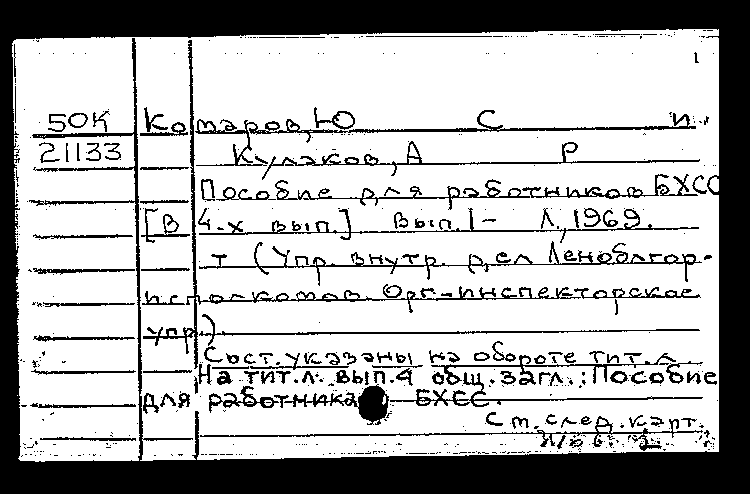 1
50К Комаров, Ю С и
21133 Кулаков, А Р
Пособие для работников БХСС
[В 4-х вып.] Вып. I- Л., 1969.
т (Упр. внутр. дел Леноблгор-
исполкомов. Орг-инспекторское
упр)
Сост. указаны на обороте тит. л.
На тит. л. вып. 4 общ. загл.: Пособие
для работника БХСС.
См. след. карт.